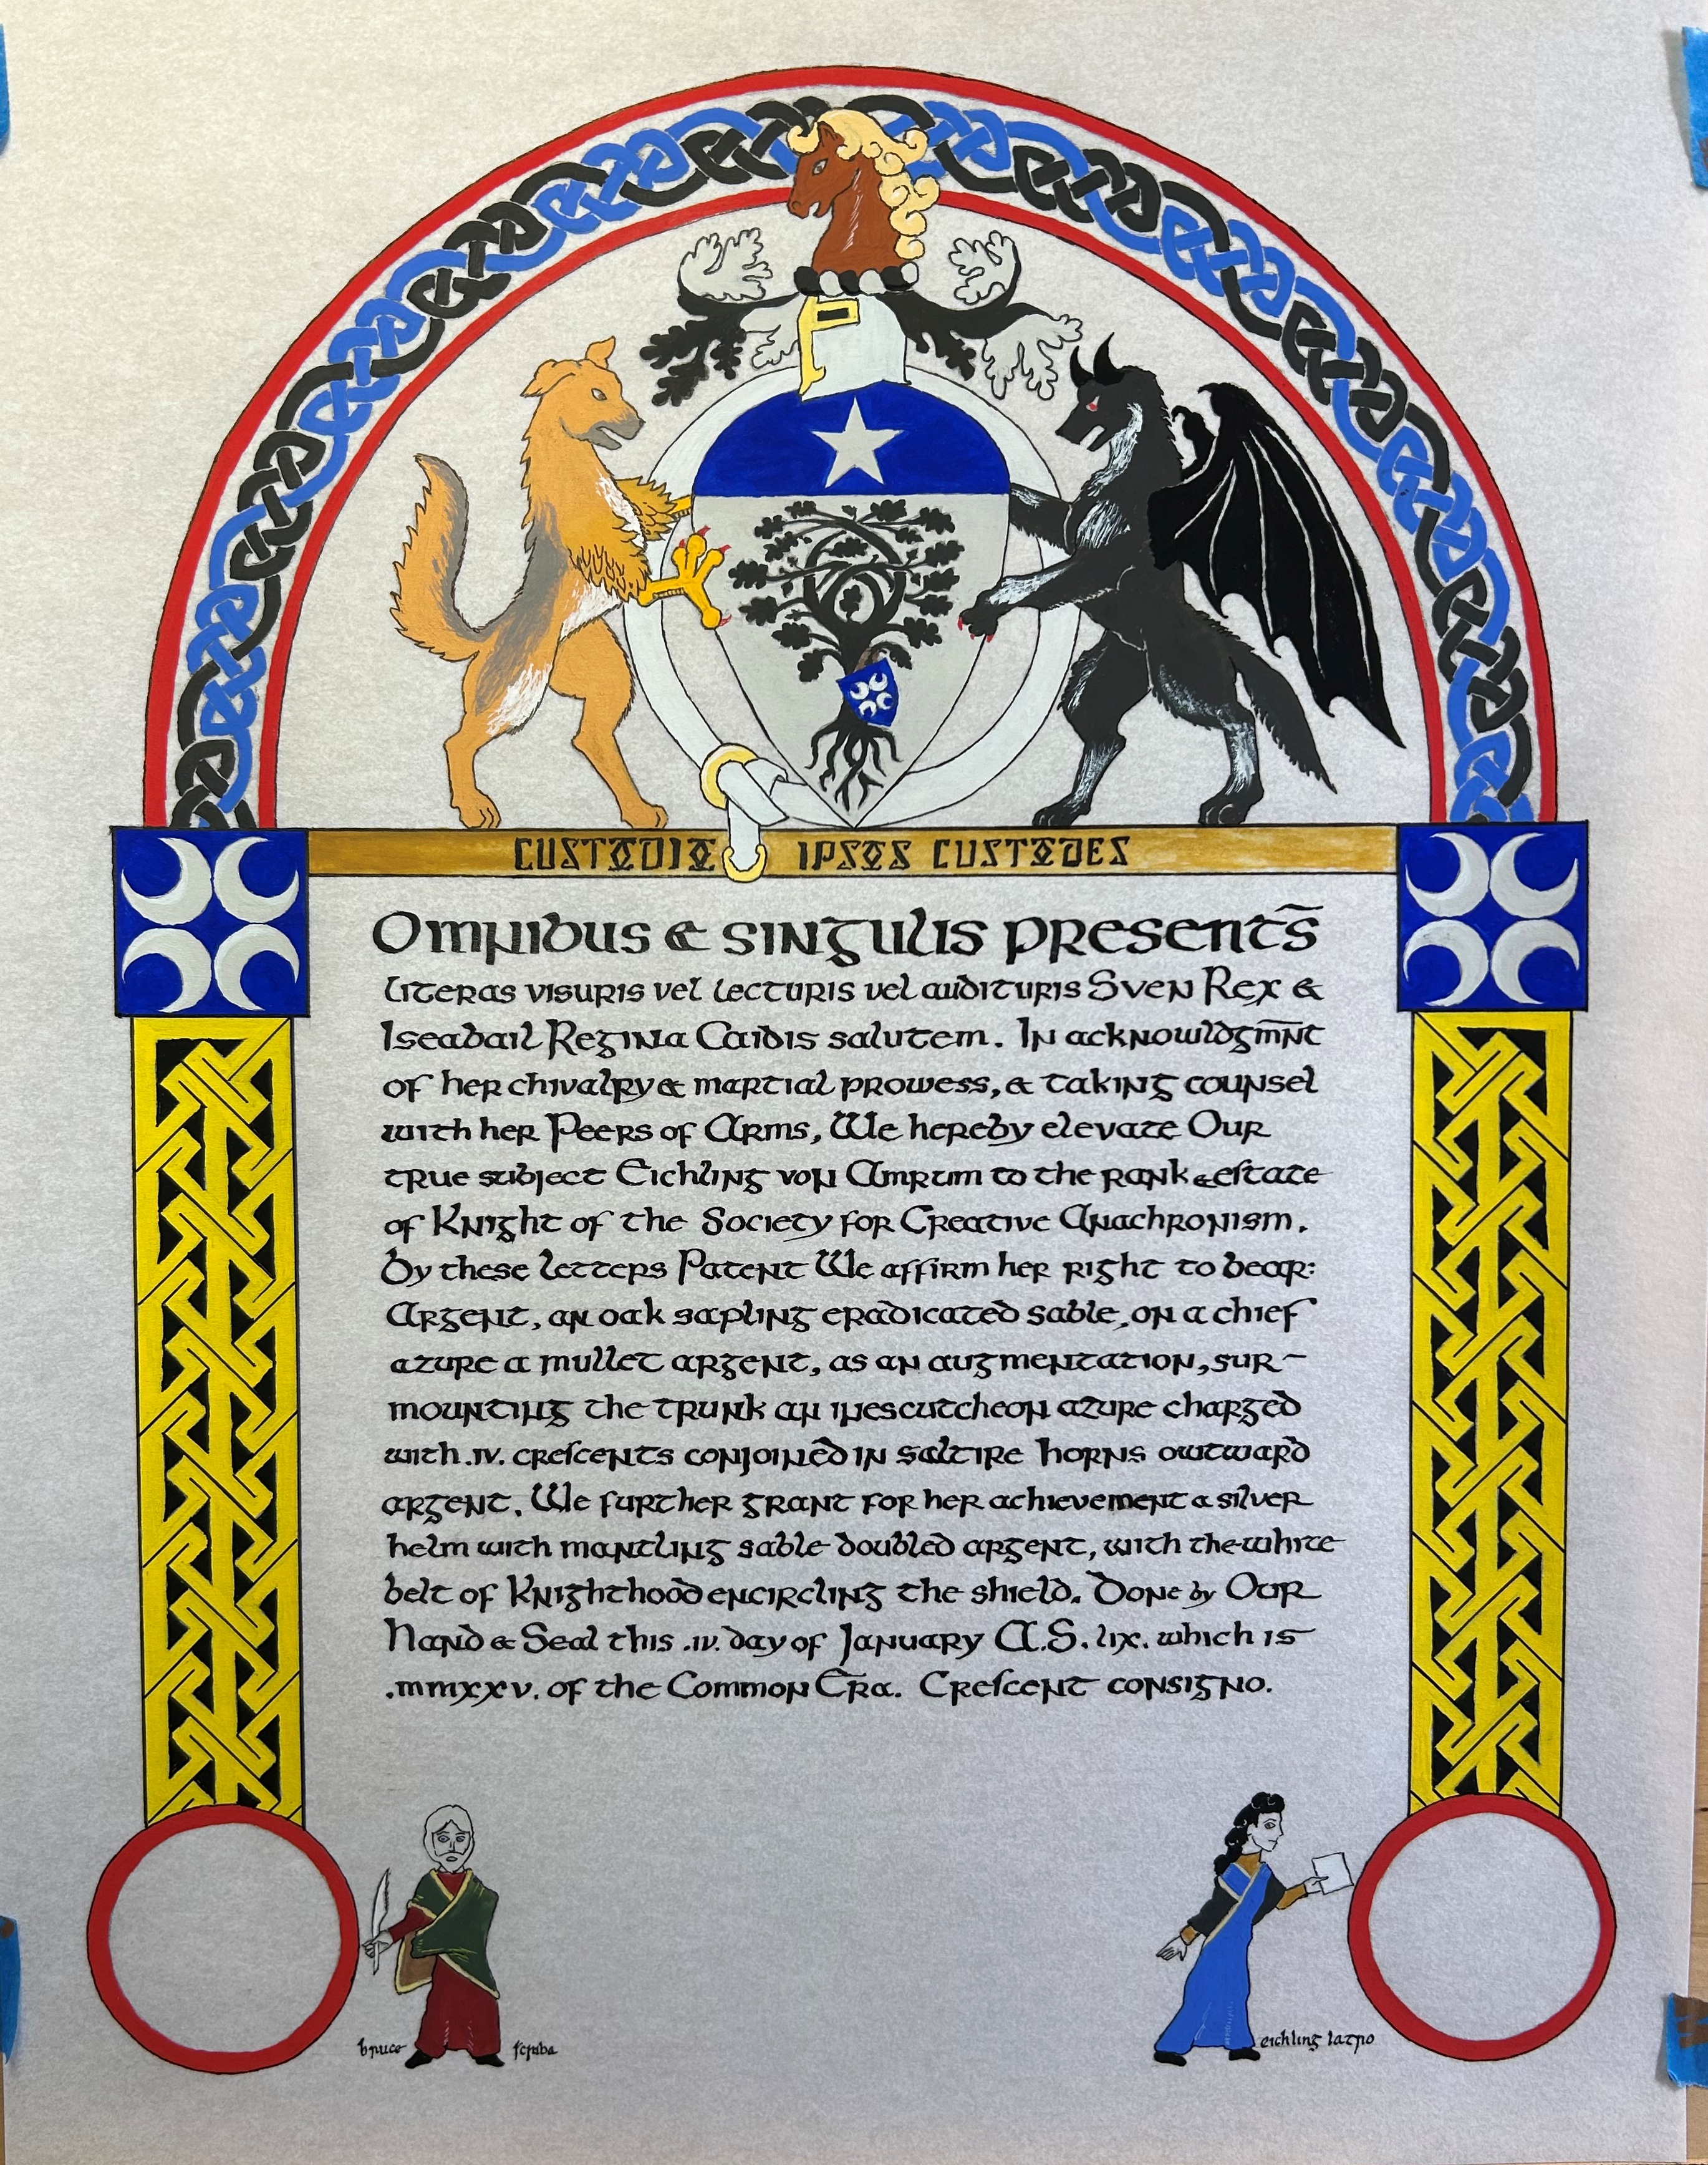 CUSTODIO IPSOS CUSTODES
Omnibus & singulis present̃s
literas visuris vel lecturis vel audituris Sven Rex &
Iseabail Regina Caidis salutem. In acknowldgm̃nt
of her chivalry & martial prowess, & taking counsel
with her Peers of Arms, We hereby elevate Our
true subject Eichling von Amrum to the rank & eſtate
of Knight of the Society for Creative Anachronism.
By these letters Patent We affirm her right to bear:
Argent, an oak sapling eradicated sable, on a chief
azure a mullet argent, as an augmentation, sur-
mounting the trunk an inescutcheon azure charged
with .iv. creſcents conjoined in saltire horns outward
argent. We further grant for her achievement a silver
helm with mantling sable doubled argent, with the white
belt of Knighthood encircling the shield. Done by Our
Hand & Seal this .iv. day of January A.S. lix. which is
.mmxxv. of the Common Era. Creſcent consigno.
bruce ſcriba
eichling latro